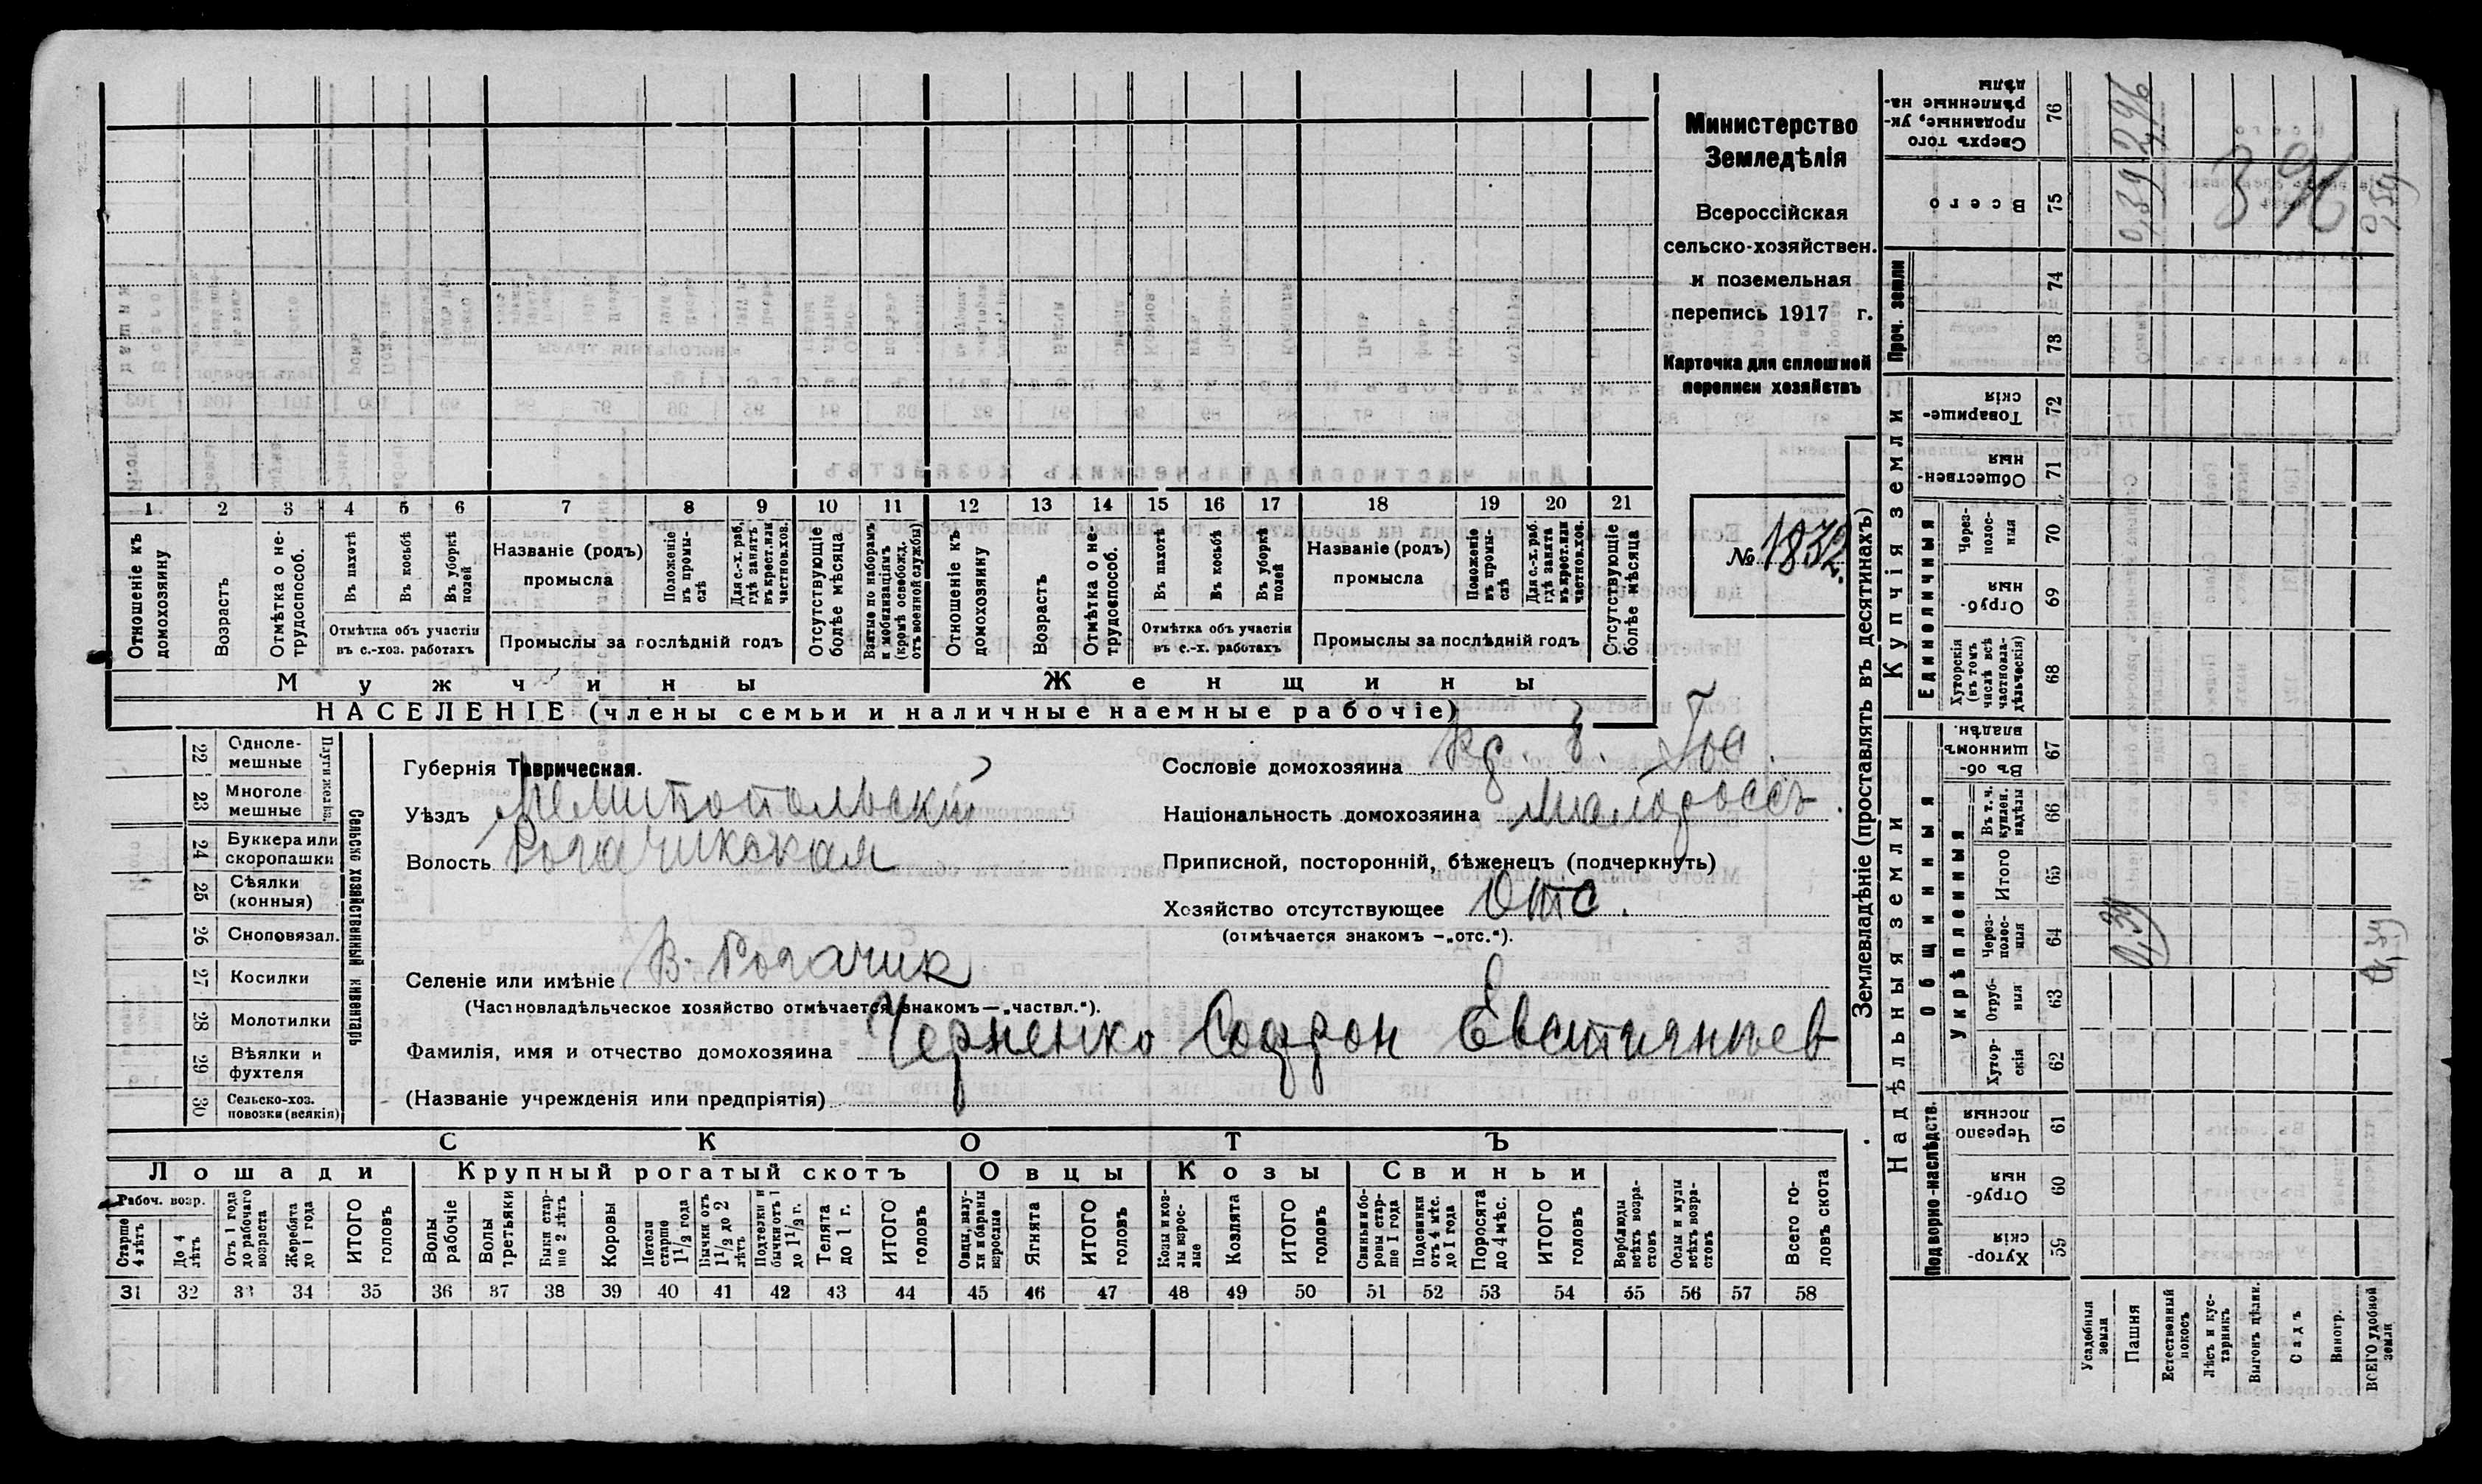 1 2 3 4 5 6 7 8 9 10 11 12 13 14 15 16 17 18 19 20 21
Отношеніе къ домохозяину
Возрастъ
Отмѣтка о не-трудоспособ.
Въ пахотѣ
Въ косьбѣ
Въ уборкѣ полей
Отмѣтка объ участіи
въ с.-хоз. работахъ
Названіе (родъ)
промысла
Положеніе въ промы-слѣ
Для с.-х. раб. гдѣ занятъ въ крест. или частнов. хоз.
Промыслы за послѣдній годъ
Отсутствующіе болѣе мѣсяца
Взятые по наборамъ и мобилизаціямъ (кромѣ освобожд. отъ военной службы)
Отношеніе къ домохозяину
Возрастъ
Отмѣтка о не-трудоспособ.
Въ пахотѣ
Въ косьбѣ
Въ уборкѣ полей
Отмѣтка объ участіи
въ с.-х. работахъ
Названіе (родъ)
промысла
Положеніе въ промы-слѣ
Для с.-х. раб. гдѣ занята въ крест. или частнов. хоз.
Промыслы за послѣдній годъ
Отсутствующіе болѣе мѣсяца
Мужчины
Женщины
НАСЕЛЕНІЕ (члены семьи и наличные наемные рабочіе)
Министерство
Земледѣлія
Всероссійская
сельско-хозяйствен.
и поземельная
перепись 1917 г.
Карточка для сплошной
переписи хозяйствъ
№ 1832.
Сельско хозяйственный инвентарь
Плуги желѣз.
22 Одноле-мешные
23 Многоле мешные
24 Буккера или скоропашки
25 Сѣялки (конныя)
26 Сноповязал.
27 Косилки
28 Молотилки
29 Вѣялки и фухтеля
30 Сельско-хоз. повозки (всякія)
Губернія Таврическая.
Уѣздъ Мелитопольскій
Волость Рогачикская
Селеніе или имѣніе В. Рогачик
(Частновладѣльческое хозяйство отмѣчается знакомъ—„частвл.“).
Фамилія, имя и отчество домохозяина Черненко Софрон Евстигнеев
(Названіе учрежденія или предпріятія)
Сословіе домохозяина
Національность домохозяина Малороссъ
Приписной, посторонній, бѣженецъ (подчеркнуть)
Хозяйство отсутствующее Отс.
(отмѣчается знакомъ —„отс.“).
СКОТЪ
Лошади
Крупный рогатый скотъ
Овцы
Козы
Свиньи
Рабоч. возр.
Старше 4 лѣтъ
До 4 лѣтъ
Отъ 1 года до рабочаго возраста
Жеребята до 1 года
ИТОГО головъ
Волы рабочіе
Волы третьяки
Быки стар-ше 2 лѣтъ
Коровы
Нетели старше 1 1/2 года
Бычки отъ 1 1/2 до 2 лѣтъ
Подтелки и бычки отъ 1 до 1 1/2 г.
Телята до 1 г.
ИТОГО головъ
Овцы, валу-хи и бараны взрослые
Ягнята
ИТОГО головъ
Козы и коз-лы взрос-лые
Козлята
ИТОГО головъ
Свиньи и бо-ровы стар-ше 1 года
Подсвинки отъ 4 мѣс. до 1 года
Поросята до 4 мѣс.
ИТОГО головъ
Верблюды всѣхъ возра-стовъ
Ослы и мулы всѣхъ возра-стовъ
Всего го-ловъ скота
31 32 33 34 35 36 37 38 39 40 41 42 43 44 45 46 47 48 49 50 51 52 53 54 55 56 57 58
Землевладѣніе (проставлять въ десятинахъ)
Купчія земли
Надѣльныя земли
Сверхъ того проданные, ук-рѣпленные на-дѣлы 76
Всего 75
0,39
Проч. земли 74
73
Товарище-скія 72
Обществен-ныя 71
Единоличныя
Через-полос-ныя 70
Отруб-ныя 69
Хуторскія (въ томъ числѣ всѣ частновла-дѣльческія) 68
Общинныя
Въ об-щинномъ владѣн. 67
Укрѣпленныя
Въ т. ч. куплен. надѣлы 66
Итого 65
Через-полос-ныя 64
Отруб-ныя 63
Хутор-скія 62
Подворно-наслѣдств.
Черезпо лосныя 61
Отруб-ныя 60
Хутор-скія 59
Усадебныя земли
Пашня
Естественный покосъ
Лѣсъ и кус-тарникъ
Выгонъ цѣлин.
Садъ
Виногр.
ВСЕГО удобной земли